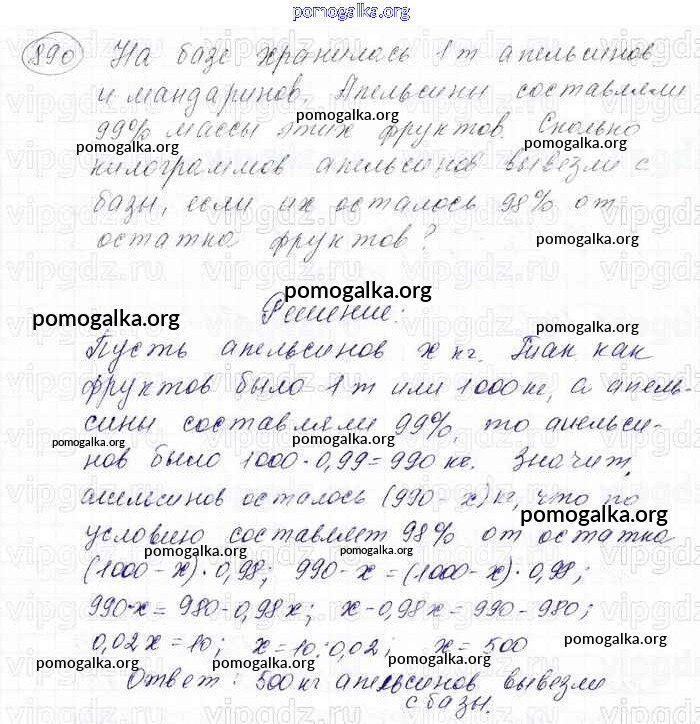 pomogalka.org
890 На базе хранилось 1 т апельсинов
и мандаринов. Апельсины составляли
99% массы этих фруктов. Сколько
pomogalka.org pomogalka.org
килограммов апельсинов вывезли с
базы, если их осталось 98% от
остатка фруктов?
pomogalka.org pomogalka.org
pomogalka.org
Решение:
pomogalka.org pomogalka.org
Пусть апельсинов х кг. Так как
фруктов было 1 т или 1000 кг, а апель-
сины составляли 99%, то апельси-
pomogalka.org pomogalka.org
нов было 1000·0,99=990 кг. Значит,
апельсинов осталось (990-х) кг, что по
pomogalka.org
условию составляет 98% от остатка
pomogalka.org pomogalka.org
(1000-х)·0,98; 990-х=(1000-х)·0,98;
990-х=980-0,98х; х-0,98х=990-980;
0,02х=10; х=10:0,02; х=500
pomogalka.org pomogalka.org pomogalka.org
Ответ: 500 кг апельсинов вывезли
с базы.